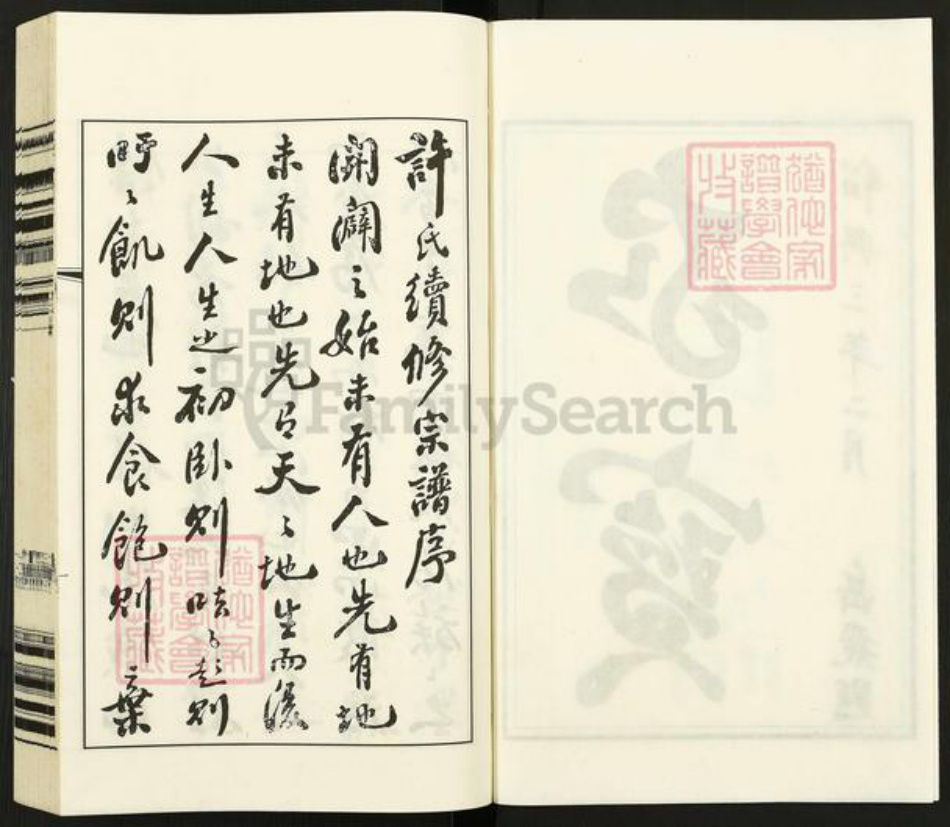 許氏續修宗譜序
開闢之始未有人也先有地
未有地也先有天〻地生而後
人生人生之初卧則呿〻起則
吁〻飢則求食飽則棄
猶他家
譜學會
收藏
猶他家
譜學會
收藏
FamilySearch